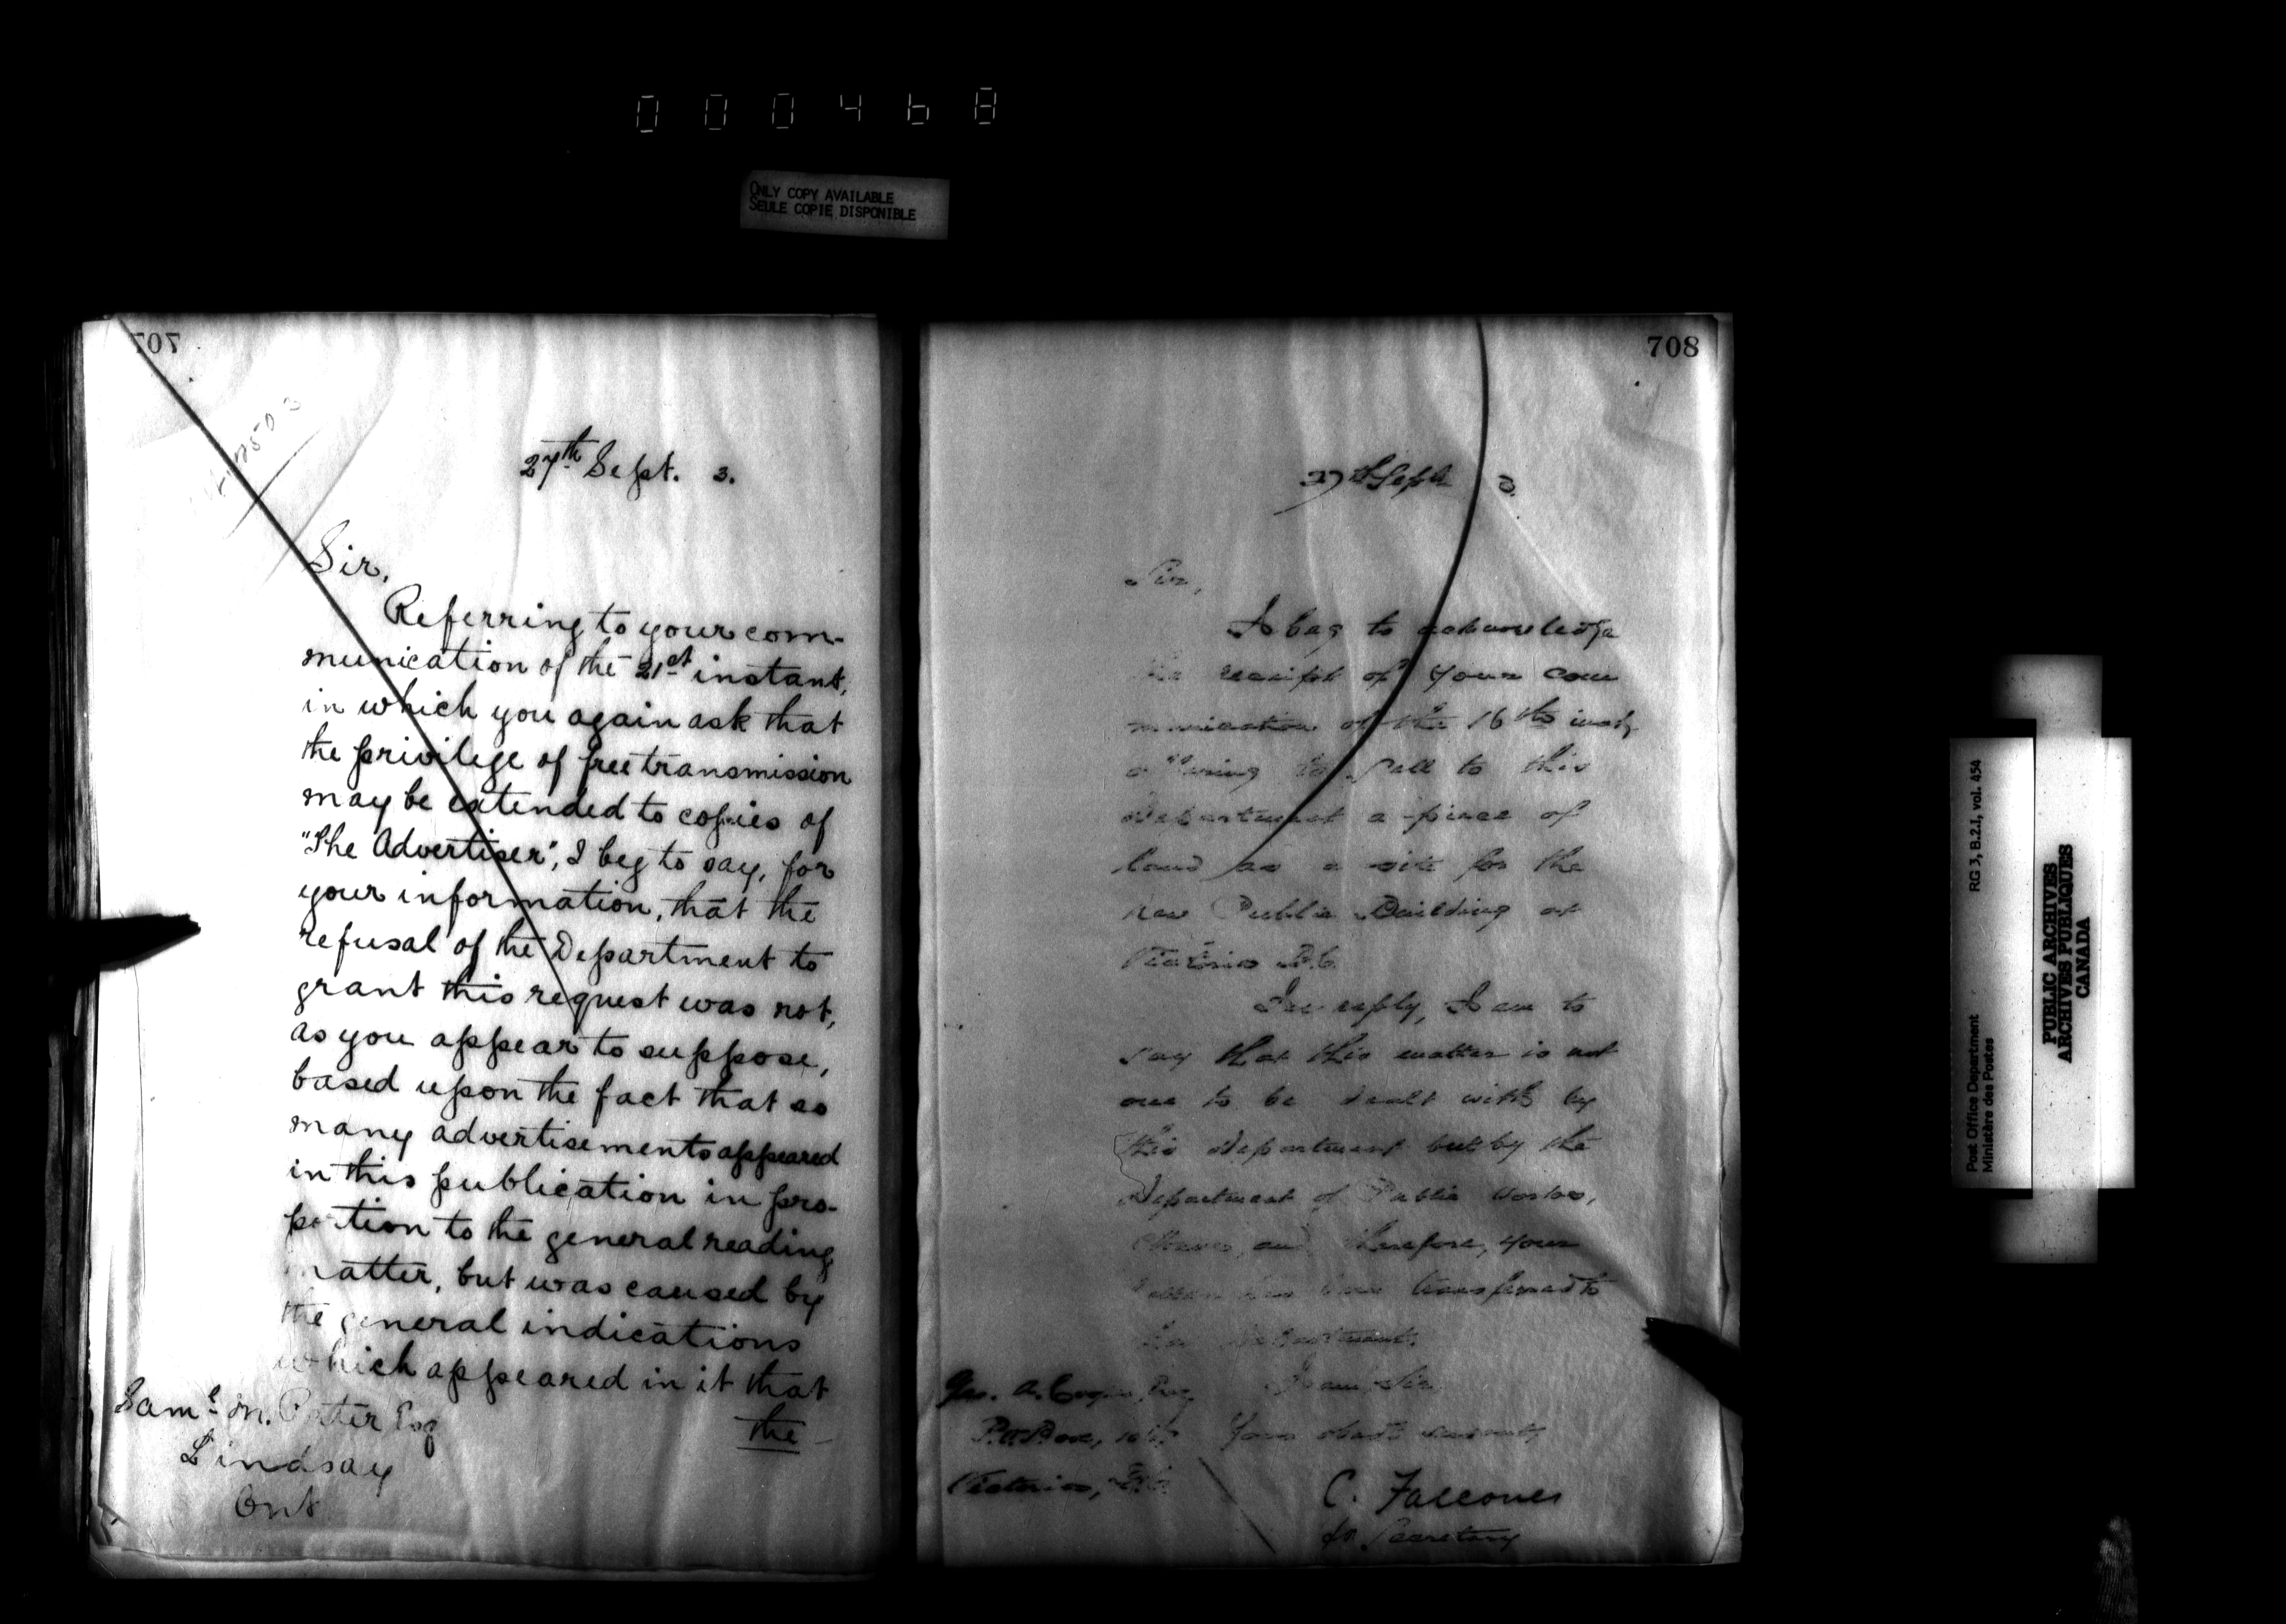 000468
ONLY COPY AVAILABLE
SEULE COPIE DISPONIBLE
707
27th Sept. 3.
Sir,
Referring to your com-
munication of the 21st instant,
in which you again ask that
the privilege of free transmission
may be extended to copies of
"The Advertiser", I beg to say, for
your information, that the
refusal of the Department to
grant this request was not,
as you appear to suppose,
based upon the fact that so
many advertisements appeared
in this publication in pro-
portion to the general reading
matter, but was caused by
the general indications
which appeared in it that
the
Saml M. Porter Esq
Lindsay
Ont
708
27th Sept 3.
Sir,
I beg to acknowledge
the receipt of your com
munication of the 16th inst,
offering to sell to this
Department a piece of
land as a site for the
new Public Building at
Victoria B.C.
In reply, I am to
say that this matter is not
one to be dealt with by
this Department but by the
Department of Public Works,
and therefore, your
transferred to
Department.
I am, Sir,
Geo. A. Esq
P.O. Box,
Your obedt servant,
Victoria, B.C.
C. Falconer
for Secretary
Post Office Department
Ministère des Postes
RG 3, B.2.1, vol. 454
PUBLIC ARCHIVES
ARCHIVES PUBLIQUES
CANADA